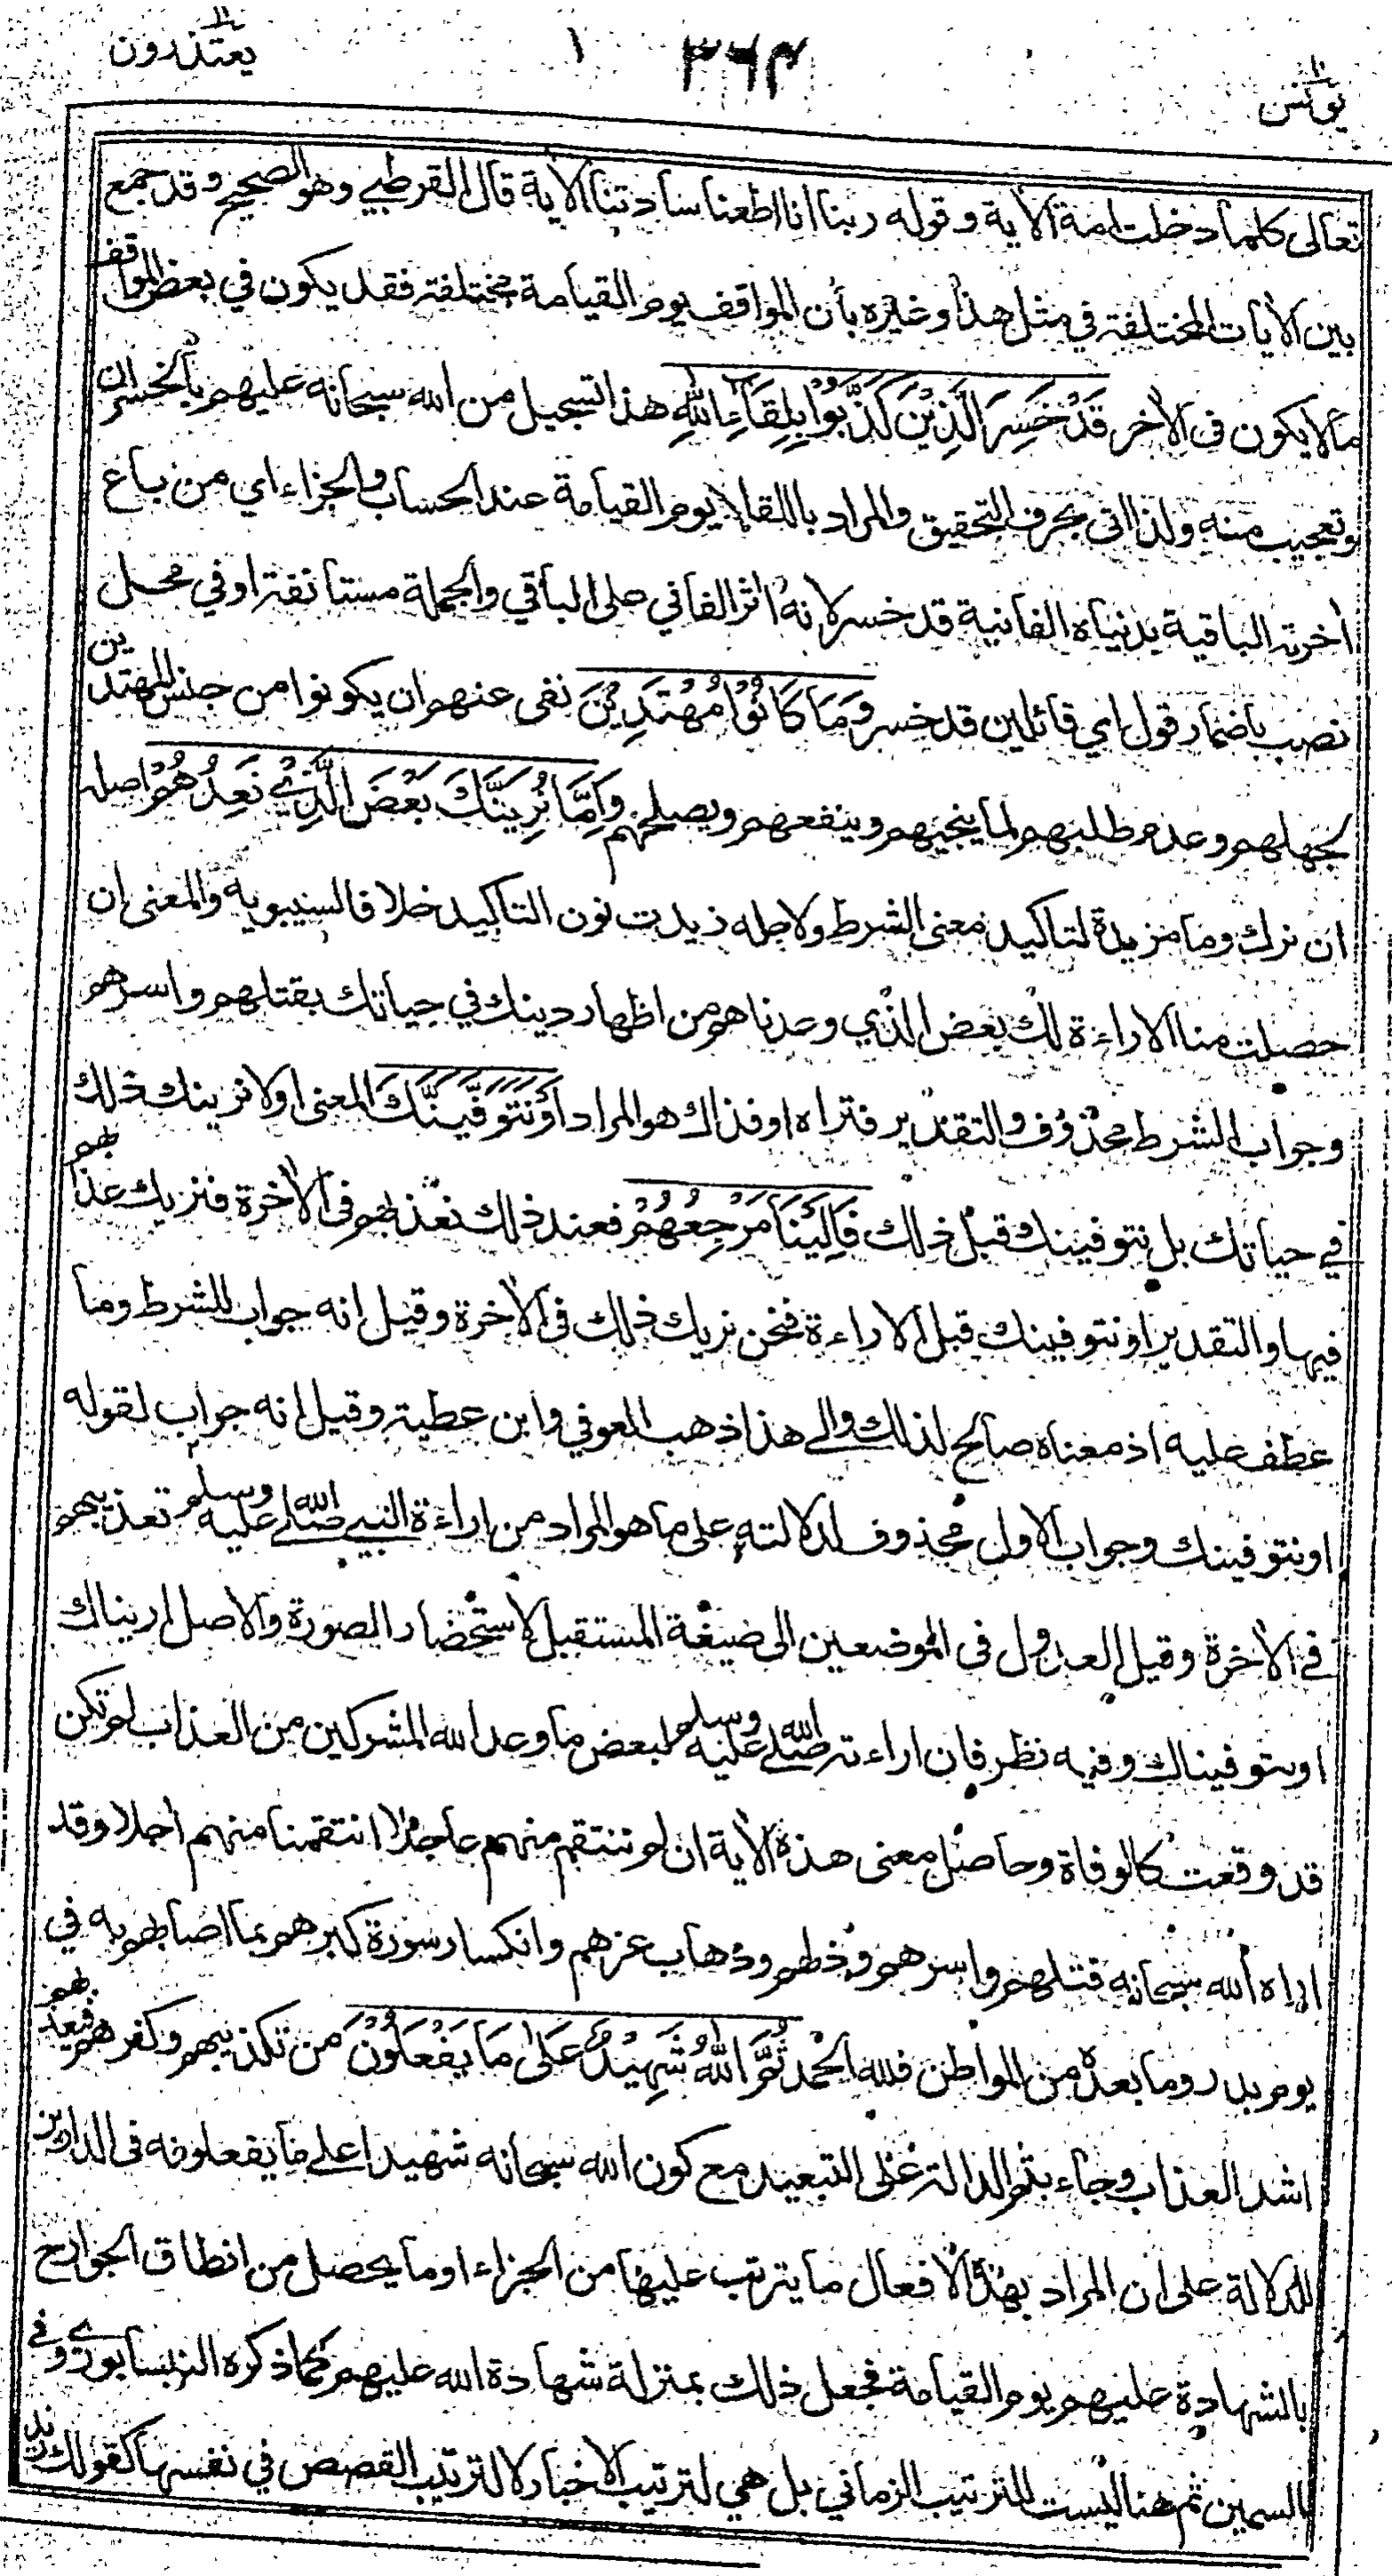 يونس ١٠
٣٦٣
يعتذرون ١١
تعالى كلما دخلت امة الاية وقوله ربنا انا اطعنا سادتنا الاية قال القرطبي وهو الصحيح وقد جمع
بين الايات المختلفة في مثل هذا وغيره بأن المواقف يوم القيامة مختلفة فقد يكون في بعض المواقف
مالا يكون فى الاخر قَدْ خَسِرَ الَّذِيْنَ كَذَّبُوْا بِلِقَآءِ اللّٰهِ هذا تسجيل من الله سبحانه عليهم بالخسران
وتعجيب منه ولذا اتى بحرف التحقيق والمراد باللقاء يوم القيامة عند الحساب والجزاء اي من باع
اخرته الباقية بدنياه الفانية قد خسر لانه اثر الفاني على الباقي والجملة مستانفة او في محل
نصب باضمار قول اي قائلين قد خسر وَمَا كَانُوْا مُهْتَدِيْنَ نفى عنهم ان يكونوا من جنس المهتدين
لجهلهم وعدم طلبهم لما ينجيهم وينفعهم ويصلحهم وَاِمَّا نُرِيَنَّكَ بَعْضَ الَّذِيْ نَعِدُهُمْ اصله
ان نرك وما مزيدة لتاكيد معنى الشرط ولاجله زيدت نون التاكيد خلافا لسيبويه والمعنى ان
حصلت منا الاراءة لك بعض الذي وعدناهم من اظهار دينك في حياتك بقتلهم واسرهم
وجواب الشرط محذوف والتقدير فتراه او فذاك هو المراد اَوْ نَتَوَفَّيَنَّكَ المعنى او لا نرينك ذلك
في حياتك بل نتوفينك قبل ذلك فَاِلَيْنَا مَرْجِعُهُمْ فعند ذلك نعذبهم فى الاخرة فنريك عذابهم
فيها والتقدير او نتوفينك قبل الاراءة فنحن نريك ذلك فى الاخرة وقيل انه جواب للشرط وما
عطف عليه اذ معناه صالح لذلك والى هذا ذهب العوفي وابن عطية وقيل انه جواب لقوله
او نتوفينك وجواب الاول محذوف لدلالته على ما هو المراد من اراءة النبي صلى الله عليه وسلم تعذيبهم
في الاخرة وقيل العدول فى الموضعين الى صيغة المستقبل لاستحضار الصورة والاصل اريناك
او توفيناك وفيه نظر فان اراءته صلى الله عليه وسلم لبعض ما وعد الله المشركين من العذاب لم تكن
قد وقعت كالوفاة وحاصل معنى هذه الاية ان لم ننتقم منهم عاجلا انتقمنا منهم اجلا وقد
اراه الله سبحانه قتلهم واسرهم وذلهم وذهاب عزهم وانكسار سورة كبرهم بما اصابهم به في
يوم بدر وما بعده من المواطن فلله الحمد ثُمَّ اللّٰهُ شَهِيْدٌ عَلٰى مَا يَفْعَلُوْنَ من تكذيبهم وكفرهم فيعذبهم
اشد العذاب وجاء بثم الدالة على التبعيد مع كون الله سبحانه شهيدا على ما يفعلونه فى الدارين
للدلالة على ان المراد بهذه الافعال ما يترتب عليها من الجزاء او ما يحصل من انطاق الجوارح
بالشهادة عليهم يوم القيامة فجعل ذلك بمنزلة شهادة الله عليهم كما ذكره النيسابوري وفي
السمين ثم هنا ليست للترتيب الزماني بل هي لترتيب الاخبار لا لترتيب القصص في نفسها كقولك زيد